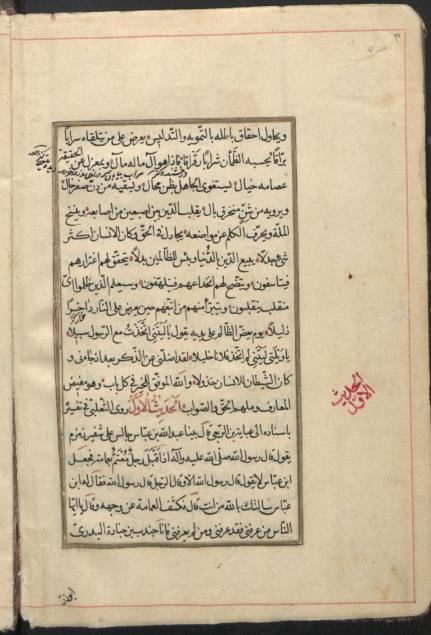 ويحاول احقاق باطله بالتمويه والتدليس يعرض على من تلقاه سرابا
براقا يحسبه الظمآن شرابا رقراقا فاذا هو آل ماله مآل وبمعزل عن الحقيقة
عصامه خيال ليستغوى الجاهل بظن محال ويسقيه من دن صفر خال
ويرويه من شن منخرق بال يقلب الدين بين اصبعين من اصابعه وينسخ
الملة ويحرف الكلم عن مواضعه يجادل فى الحق وكان الانسان اكثر
شئ جدلا يبيع الدين بالدنيا وبئس للظالمين بدلا يتحقق لهم اغترارهم
فيتاسفون ويتضح لهم انخداعهم فيتلهفون وسيعلم الذين ظلموا اى
منقلب ينقلبون ويتبرأ منهم من اتبعهم حين يعرض على النار داخرا
ذليلا يوم يعض الظالم على يديه يقول يا ليتنى اتخذت مع الرسول سبيلا
يا ويلتى ليتنى لم اتخذ فلانا خليلا لقد اضلنى عن الذكر بعد اذ جاءنى و
كان الشيطان للانسان خذولا والله الموفق للخير فى كل باب وهو مفيض
المعارف وملهم الحق والصواب الحديث الأول روى الثعلبى فى تفسيره
باسناده الى عباية بن الربعى قال بينا عبد الله بن عباس جالس على شفير زمزم
يقول قال رسول الله صلى الله عليه وآله اذ اقبل رجل معتم بعمامة فجعل
ابن عباس لا يقول قال رسول الله الا وقال الرجل قال رسول الله فقال له ابن
عباس سالتك بالله من انت قال فكشف العمامة عن وجهه وقال يا ايها
الناس من عرفنى فقد عرفنى ومن لم يعرفنى فانا جندب بن جنادة البدرى
الحديث
الاول
ابوذر
٣